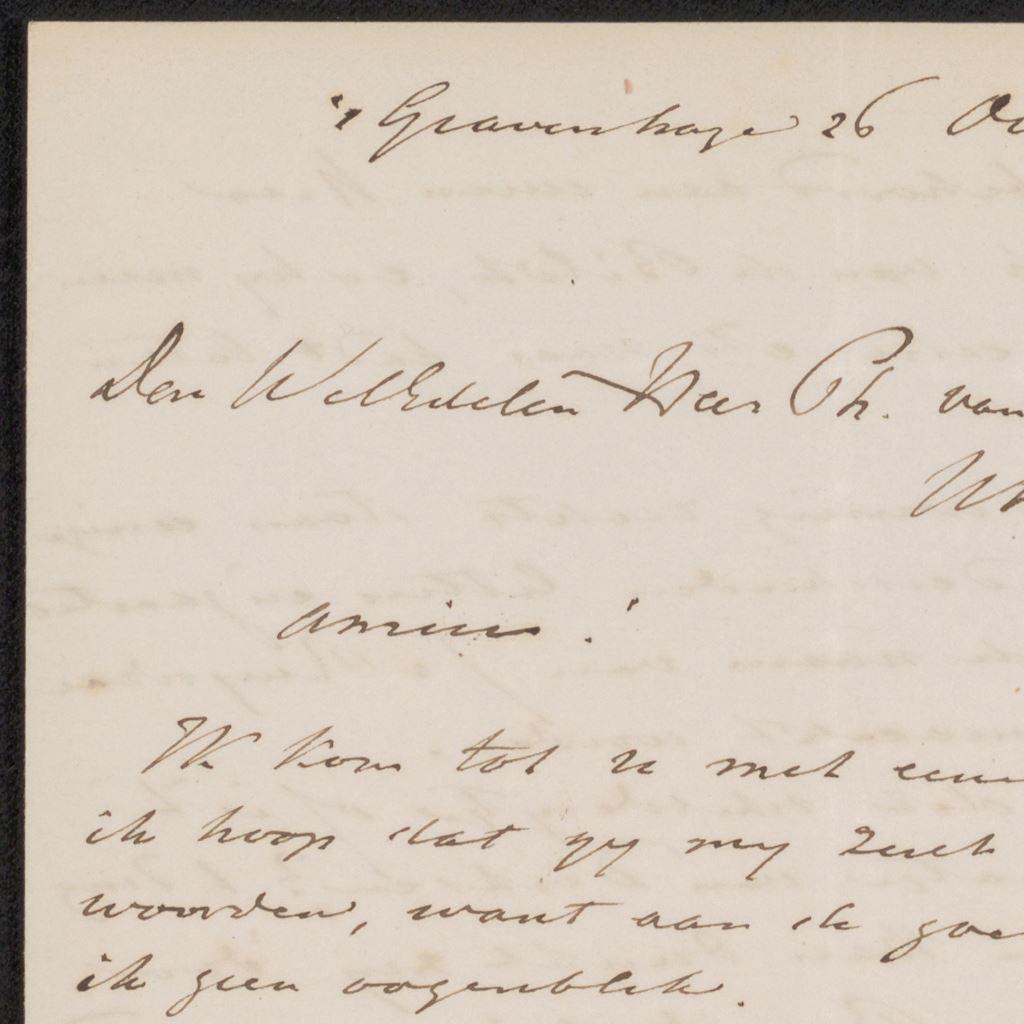 's Gravenhage 26
Den WelEdelen Heer Ph. van
amice!
Ik kom tot u met eene
ik hoop dat gy my zult
woorden, want aan ik
ik geen oogenblik.